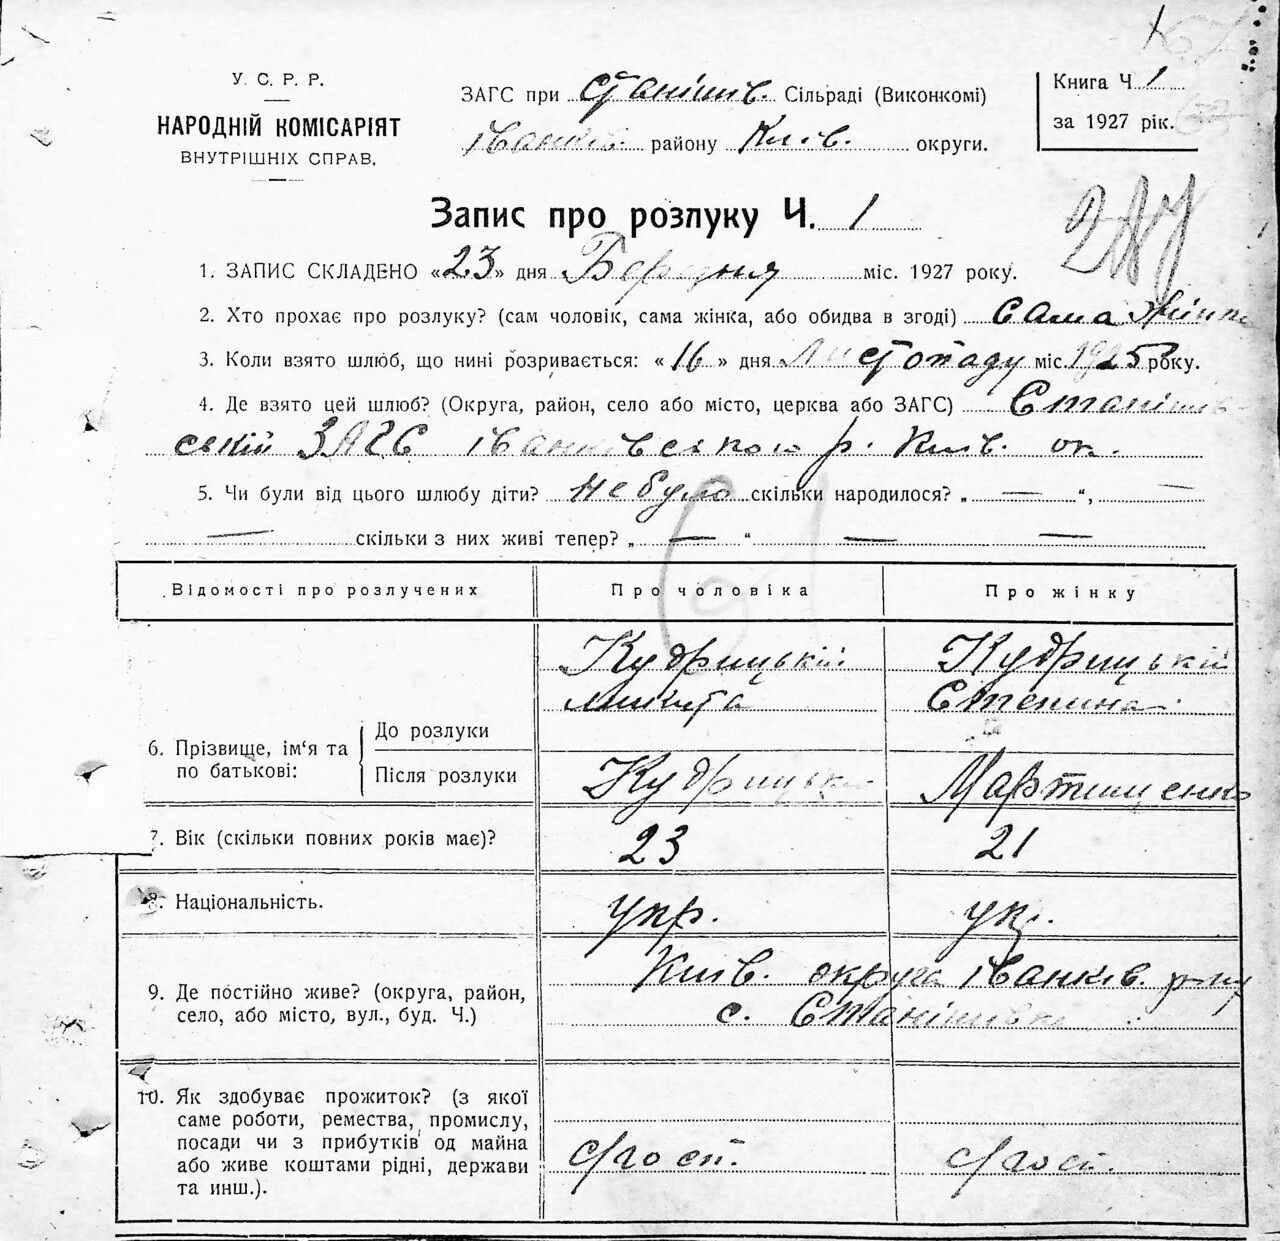 У. С. Р. Р.
НАРОДНІЙ КОМІСАРІЯТ
ВНУТРІШНІХ СПРАВ.
ЗАГС при Станішів. Сільраді (Виконкомі)
Іванків. району Київ. округи.
Книга Ч 1
за 1927 рік.
Запис про розлуку Ч. 1
1. ЗАПИС СКЛАДЕНО «23» дня Березня міс. 1927 року.
2. Хто прохає про розлуку? (сам чоловік, сама жінка, або обидва в згоді) сама жінка
3. Коли взято шлюб, що нині розривається: «16» дня Листопаду міс. 1925 року.
4. Де взято цей шлюб? (Округа, район, село або місто, церква або ЗАГС) Станішів-
ській ЗАГС Іванківського р. Київ. ок.
5. Чи були від цього шлюбу діти? не було скільки народилося? „ — “, —
— скільки з них живі тепер? „ — “ — —
Відомості про розлучених Про чоловіка Про жінку
Кудрицькій Кудрицькій
Микита Степина
6. Прізвище, ім‘я та по батькові:
До розлуки
Після розлуки Кудрицькій Мартищенко
7. Вік (скільки повних років має)? 23 21
8. Національність. укр. укр.
9. Де постійно живе? (округа, район, Київ. округа Іванків. р-ну
село, або місто, вул., буд. Ч.) с. Станішівка
10. Як здобуває прожиток? (з якої
саме роботи, ремества, промислу,
посади чи з прибутків од майна с/госп. с/госп.
або живе коштами рідні, держави
та инш.).